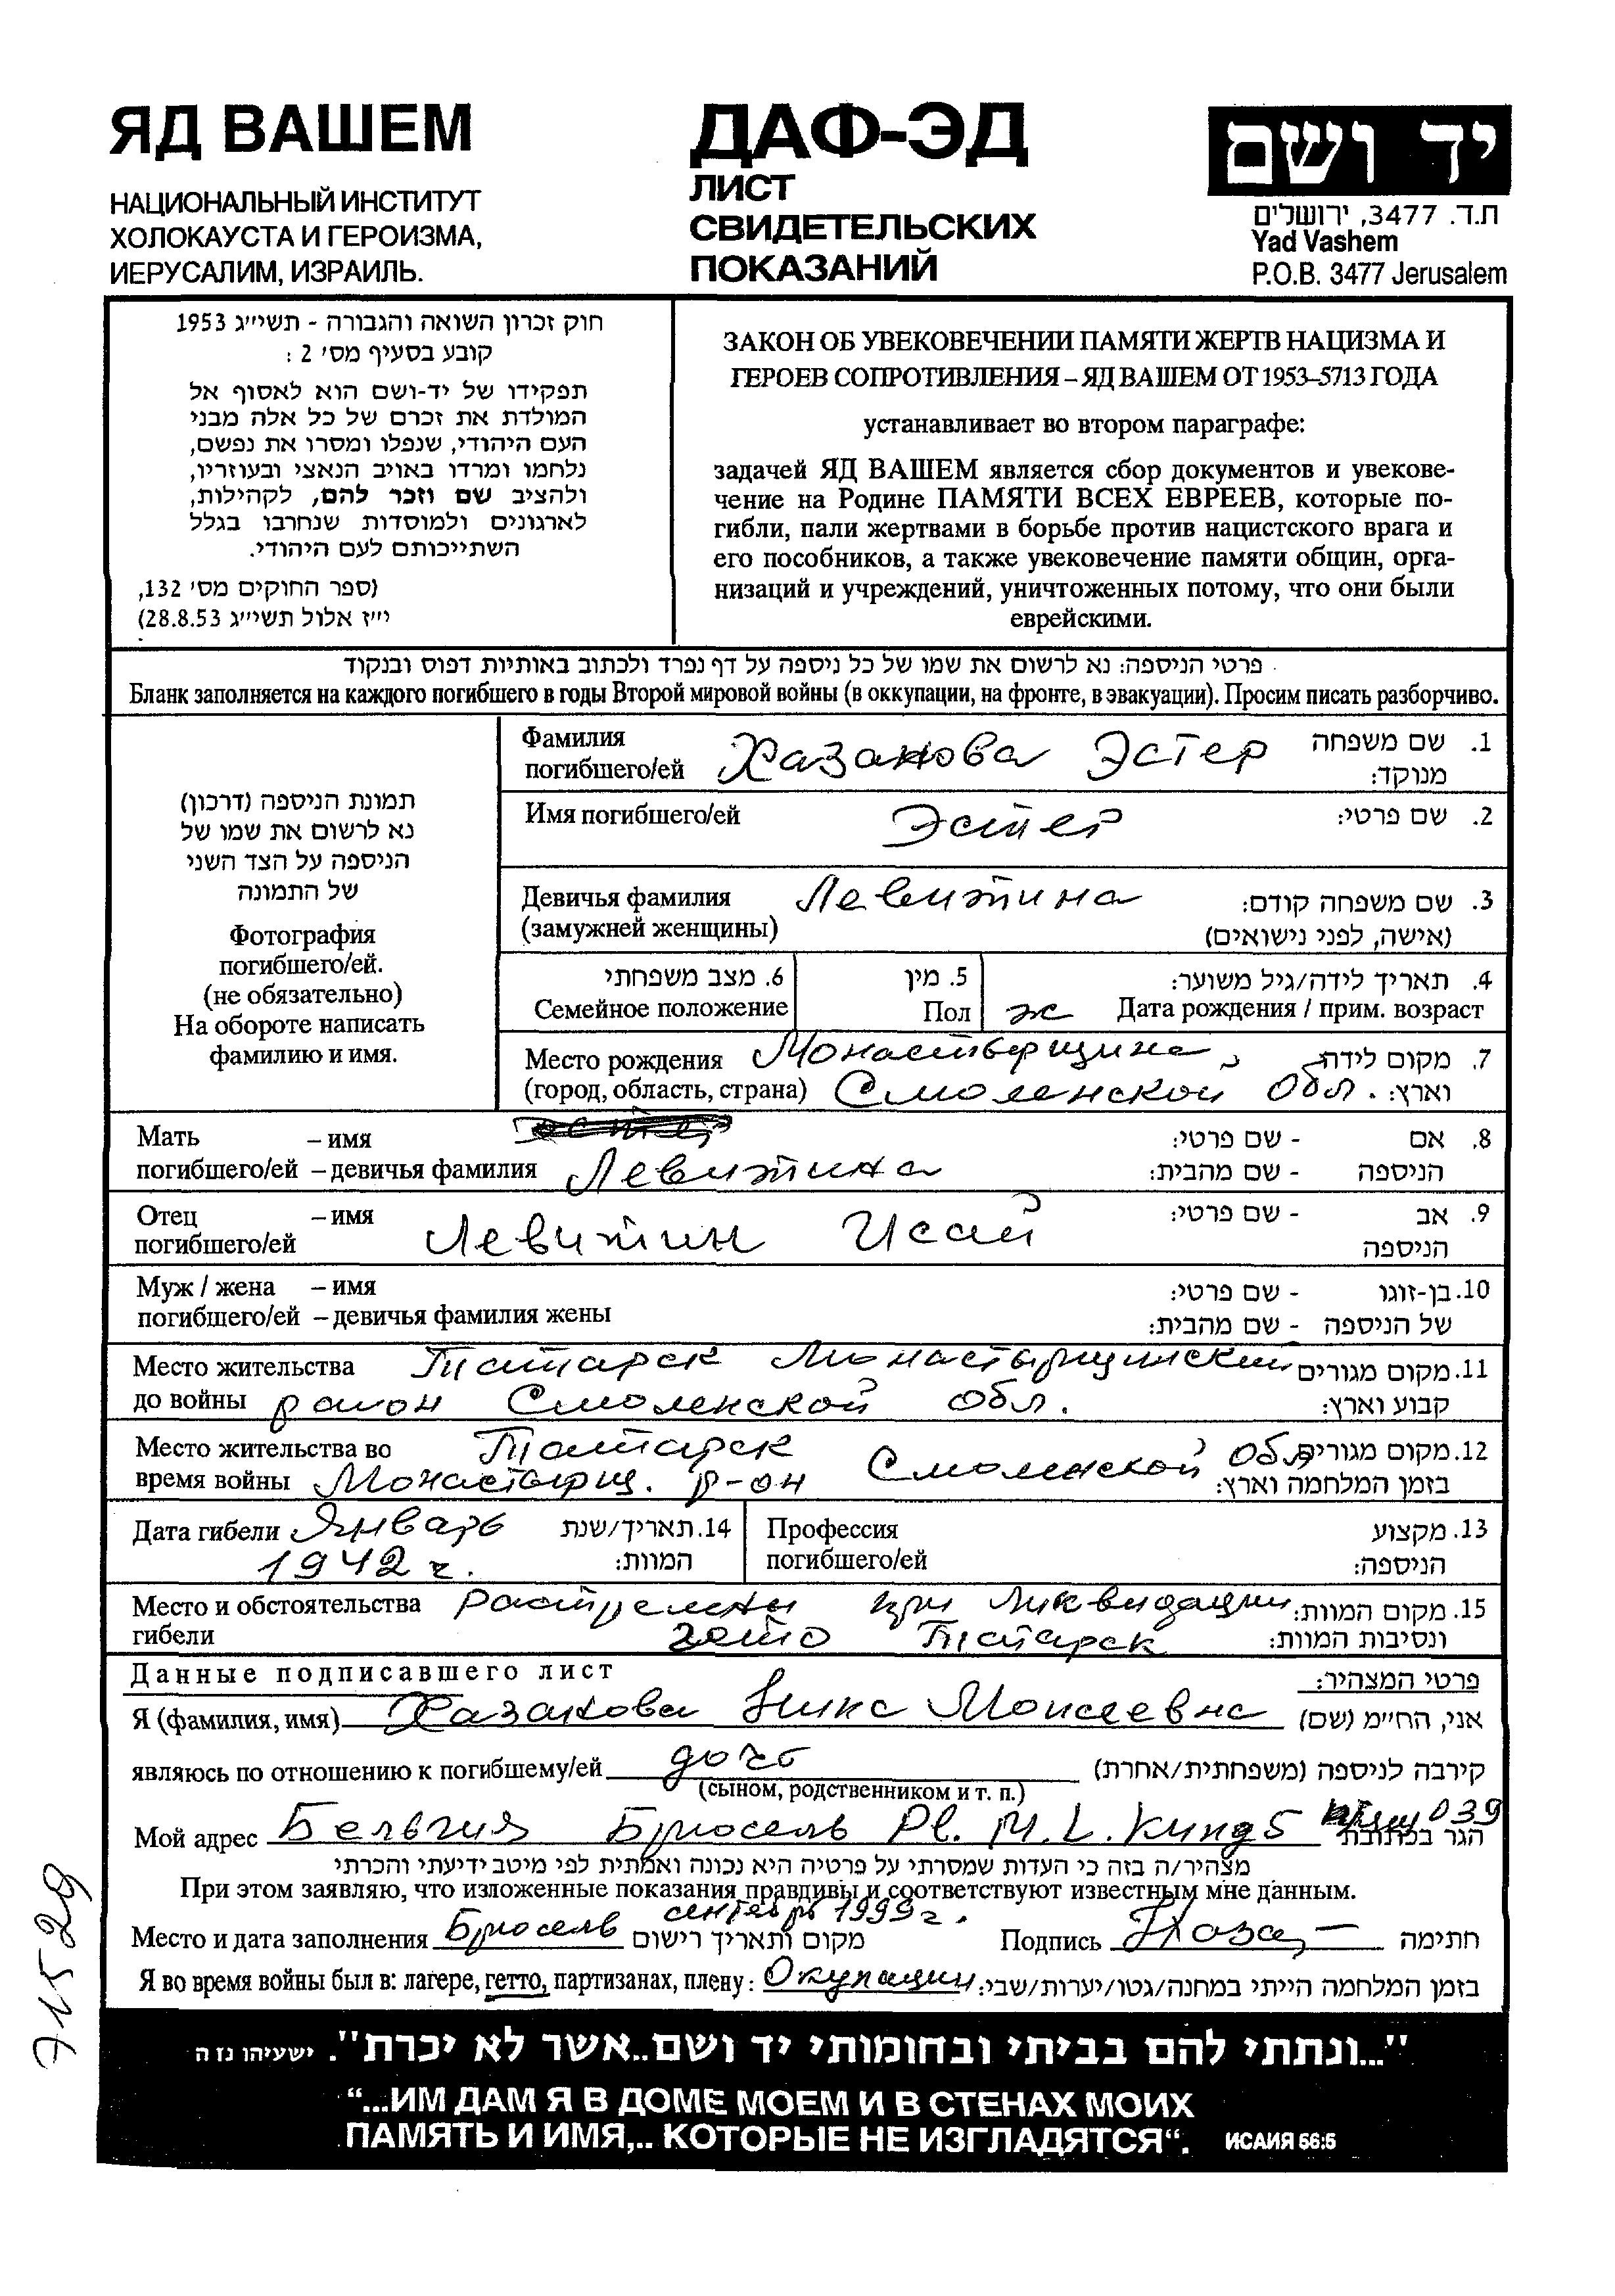 ЯД ВАШЕМ
НАЦИОНАЛЬНЫЙ ИНСТИТУТ
ХОЛОКАУСТА И ГЕРОИЗМА,
ИЕРУСАЛИМ, ИЗРАИЛЬ.
ДАФ-ЭД
ЛИСТ
СВИДЕТЕЛЬСКИХ
ПОКАЗАНИЙ
יד ושם
ת.ד. 3477, ירושלים
Yad Vashem
P.O.B. 3477 Jerusalem
חוק זכרון השואה והגבורה - תשי״ג 1953
קובע בסעיף מס׳ 2 :
תפקידו של יד-ושם הוא לאסוף אל
המולדת את זכרם של כל אלה מבני
העם היהודי, שנפלו ומסרו את נפשם,
נלחמו ומרדו באויב הנאצי ובעוזריו,
ולהציב שם וזכר להם, לקהילות,
לארגונים ולמוסדות שנחרבו בגלל
השתייכותם לעם היהודי.
(ספר החוקים מס׳ 132,
י״ז אלול תשי״ג 28.8.53)
ЗАКОН ОБ УВЕКОВЕЧЕНИИ ПАМЯТИ ЖЕРТВ НАЦИЗМА И
ГЕРОЕВ СОПРОТИВЛЕНИЯ – ЯД ВАШЕМ ОТ 1953–5713 ГОДА
устанавливает во втором параграфе:
задачей ЯД ВАШЕМ является сбор документов и увекове-
чение на Родине ПАМЯТИ ВСЕХ ЕВРЕЕВ, которые по-
гибли, пали жертвами в борьбе против нацистского врага и
его пособников, а также увековечение памяти общин, орга-
низаций и учреждений, уничтоженных потому, что они были
еврейскими.
פרטי הניספה: נא לרשום את שמו של כל ניספה על דף נפרד ולכתוב באותיות דפוס ובנקוד
Бланк заполняется на каждого погибшего в годы Второй мировой войны (в оккупации, на фронте, в эвакуации). Просим писать разборчиво.
תמונת הניספה (דרכון)
נא לרשום את שמו של
הניספה על הצד השני
של התמונה
Фотография
погибшего/ей.
(не обязательно)
На обороте написать
фамилию и имя.
Фамилия погибшего/ей Хазанова Эстер 1. שם משפחה
מנוקד:
Имя погибшего/ей Эстер 2. שם פרטי:
Девичья фамилия Левитина 3. שם משפחה קודם:
(замужней женщины) (אישה, לפני נישואים)
6. מצב משפחתי 5. מין 4. תאריך לידה/גיל משוער:
Семейное положение Пол ж Дата рождения / прим. возраст
Место рождения Монастверщина, 7. מקום לידה
(город, область, страна) Смоленской обл. וארץ:
Мать – имя 8. אם - שם פרטי:
погибшего/ей – девичья фамилия Левитина הניספה - שם מהבית:
Отец – имя Левитин Исай 9. אב - שם פרטי:
погибшего/ей הניספה
Муж / жена – имя 10. בן-זוגו - שם פרטי:
погибшего/ей – девичья фамилия жены של הניספה - שם מהבית:
Место жительства Татарск Монастырщинский 11. מקום מגורים
до войны район Смоленской обл. קבוע וארץ:
Место жительства во Татарск Смоленской обл 12. מקום מגורים
время войны Монастырщ. р-он בזמן המלחמה וארץ:
Дата гибели Январь 14. תאריך/שנת Профессия 13. מקצוע
1942 г. המוות: погибшего/ей הניספה:
Место и обстоятельства растрелян при ликвидации 15. מקום המוות:
гибели гетто Татарск ונסיבות המוות:
Данные подписавшего лист פרטי המצהיר:
Я (фамилия, имя) Хазанова Нина Моисеевна אני, הח״מ (שם)
являюсь по отношению к погибшему/ей дочь קירבה לניספה (משפחתית/אחרת)
(сыном, родственником и т. п.)
Мой адрес Бельгия Брюсель Pl. M. L. King 5 039 הגר בכתובת
מצהיר/ה בזה כי העדות שמסרתי על פרטיה היא נכונה ואמתית לפי מיטב ידיעתי והכרתי
При этом заявляю, что изложенные показания правдивы и соответствуют известным мне данным.
сентябрь 1999 г.
Место и дата заполнения Брюсель מקום ותאריך רישום Подпись חתימה
Я во время войны был в: лагере, гетто, партизанах, плену: Окупации בזמן המלחמה הייתי במחנה/גטו/יערות/שבי:
"...ונתתי להם בביתי ובחומותי יד ושם..אשר לא יכרת". ישעיהו נז ה
“...ИМ ДАМ Я В ДОМЕ МОЕМ И В СТЕНАХ МОИХ
ПАМЯТЬ И ИМЯ,.. КОТОРЫЕ НЕ ИЗГЛАДЯТСЯ“. ИСАИЯ 56:5